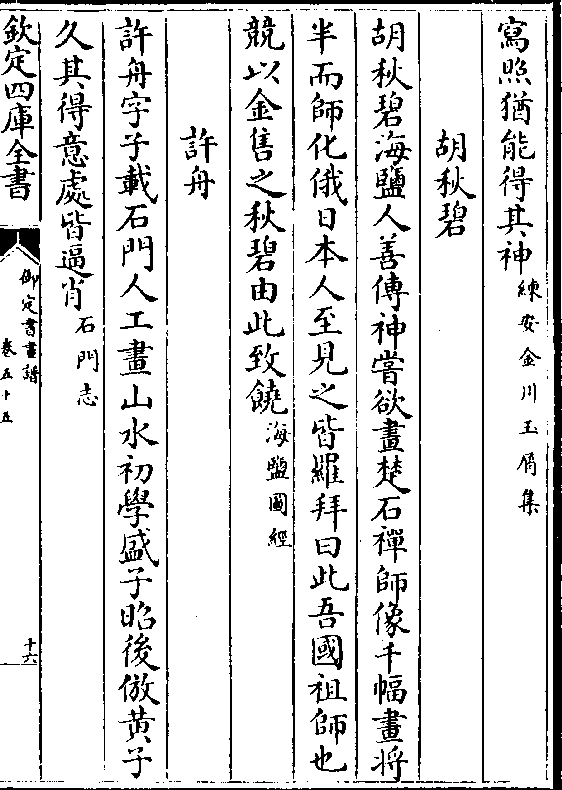 寫照猶能得其神練安金川玉屑集
胡秋碧
胡秋碧海鹽人善傳神嘗欲畫楚石禪師像千幅畫將
半而師化俄日本人至見之皆羅拜曰此吾國祖師也
競以金售之秋碧由此致饒海鹽圖經
許舟
許舟字子載石門人工畫山水初學盛子昭後倣黃子
久其得意處皆逼肖石門志
欽定四庫全書
御定書畫譜
卷五十五
十六